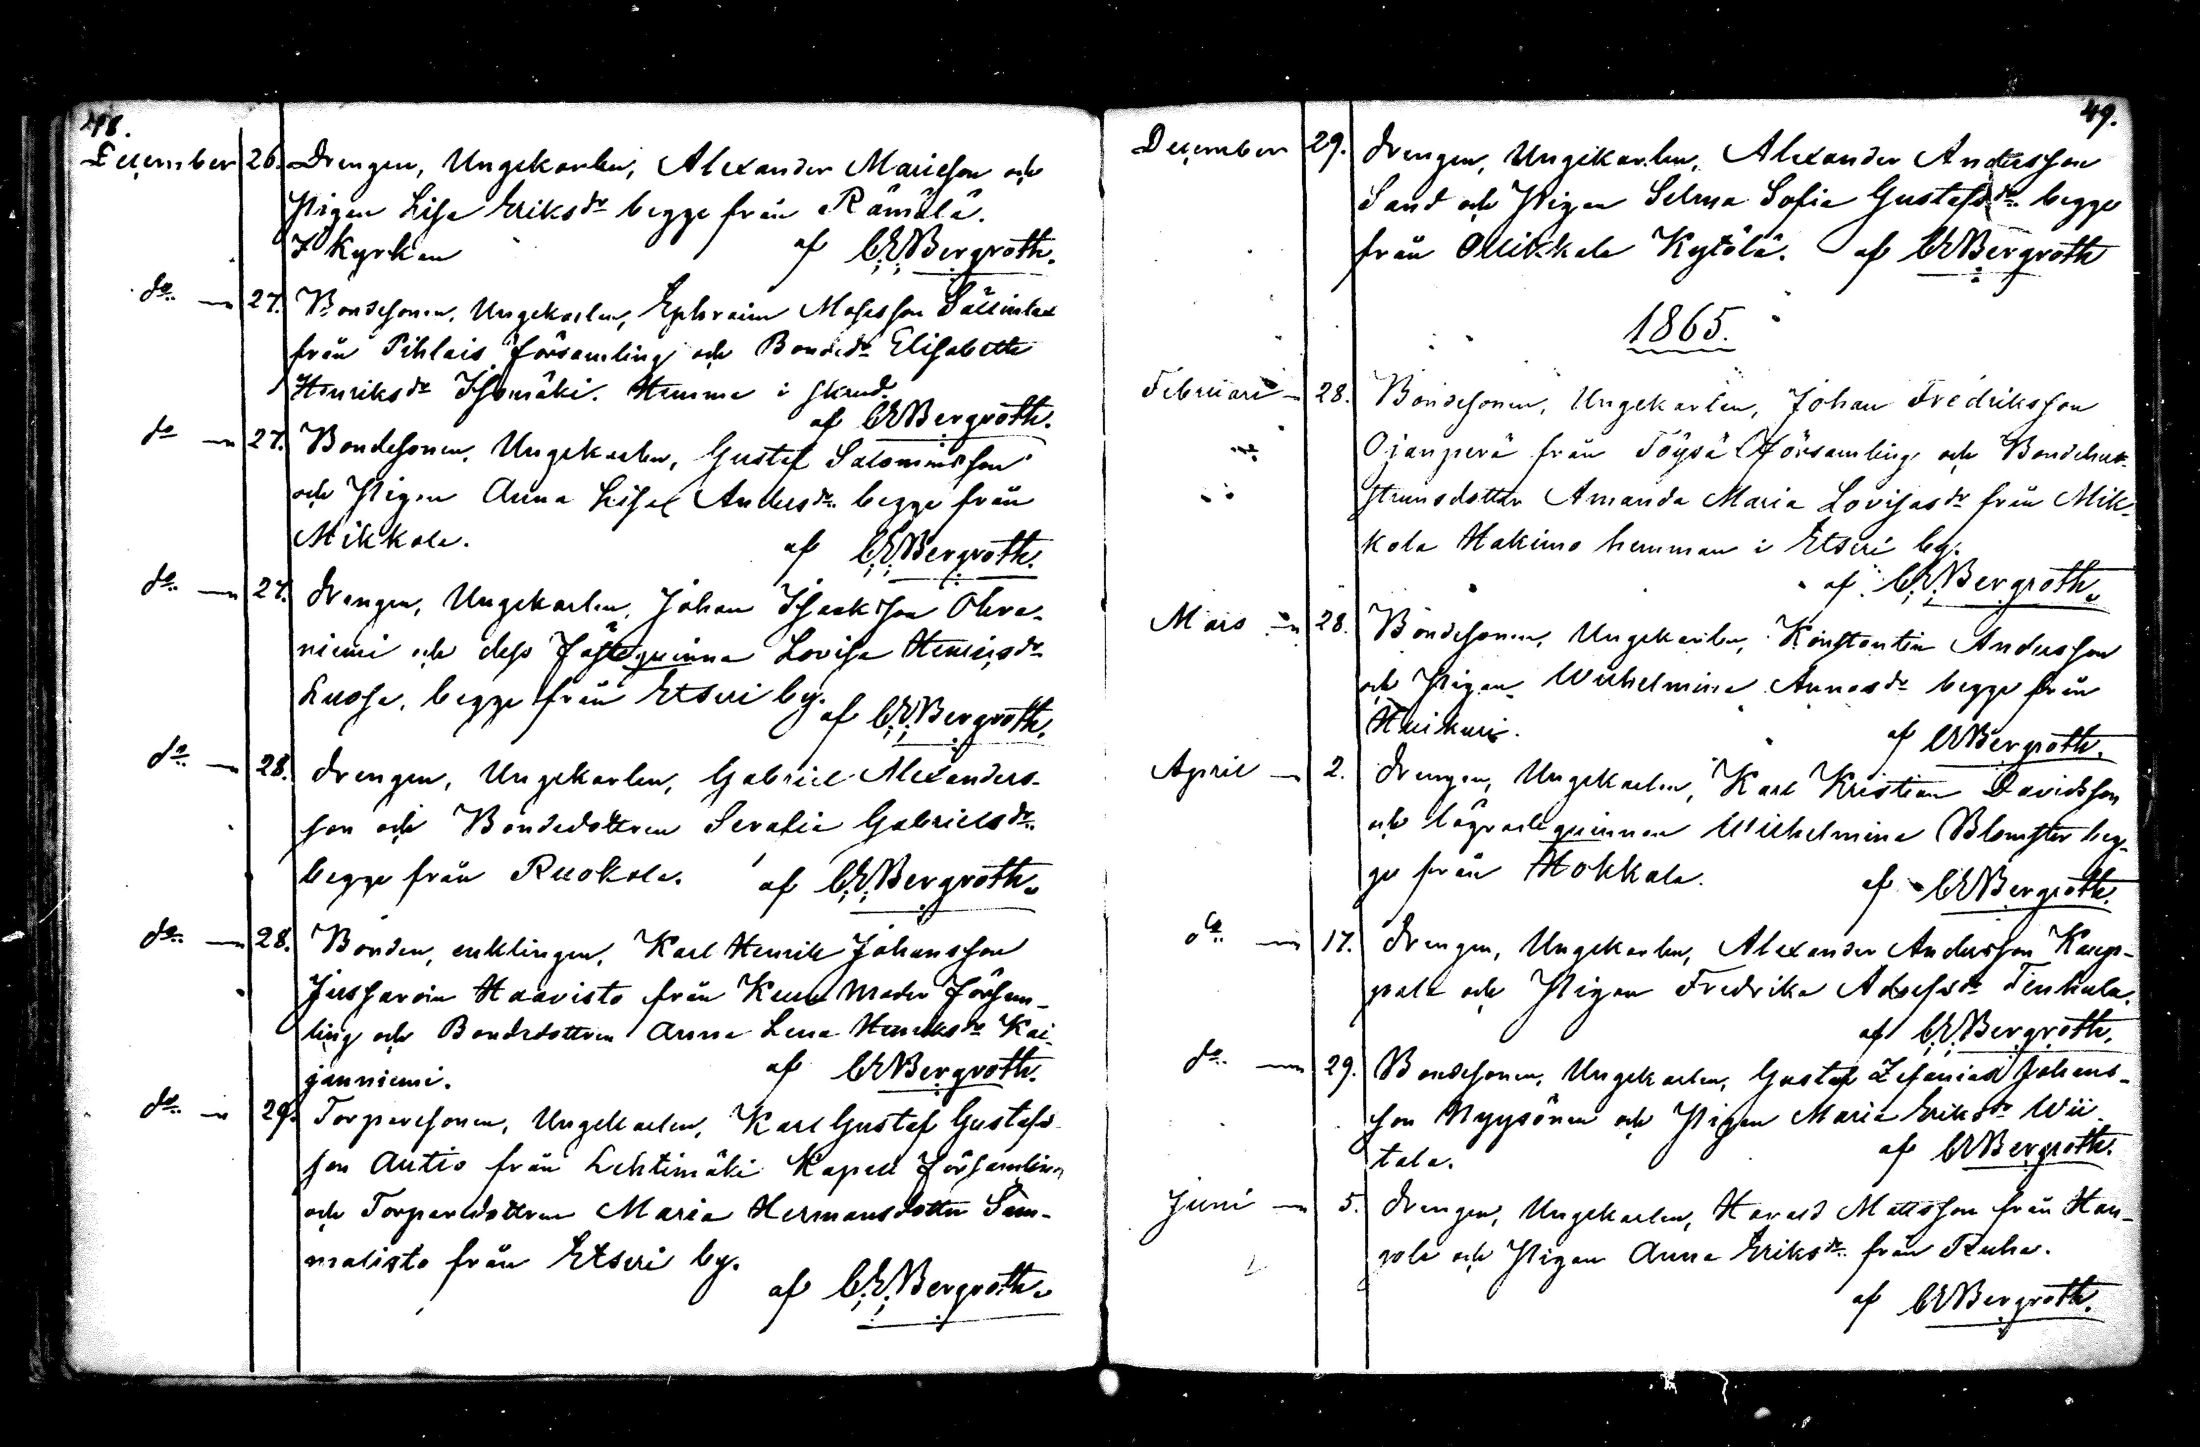 48.
December 26. Drengen, Ungekarlen, Alexander Mariesson och
Pigan Lisa Eriksdr begge från Rämälä.
I Kyrkan af C.E. Bergroth.
do 27. Bondesonen, Ungekarlen, Ephraim Mosesson
från Pihlais församling och Bondedr Elisabeth
Henriksdr Isomäki. Hemma i
af CE Bergroth.
do 27. Bondesonen, Ungekarlen, Gustaf Salomonsson
och Pigan Anna Lisa Andersdr begge från
Mikkola. af C.E. Bergroth.
do 27. Drengen, Ungekarlen, Johan Isaksson Ohra-
niemi och dess Fästeqvinna Lovisa Henricsdr
Luosa, begge från Etseri by. af C.E. Bergroth.
do 28. Drengen, Ungekarlen, Gabriel Alexanders-
son och Bondedottren Serafia Gabrielsdr
begge från Ruokola. af C.E. Bergroth.
do 28. Bonden, enklingen, Karl Henrik Johansson
Haavisto från Keuru Moder Försam-
ling och Bondedottren Anna Lena Henriksdr Kai-
janniemi. af CE Bergroth.
do 29. Torparesonen, Ungekarlen, Karl Gustaf Gustafs-
son Autio från Lehtimäki Kapell församling
och Torparedottren Maria Hermansdotter Sam-
malisto från Etseri by.
af C.E. Bergroth.
49.
December 29. Drengen, Ungekarlen, Alexander Andersson
Sand och Pigan Selma Sofia Gustafsdr begge
från Mikkola Kytölä. af CE Bergroth
1865.
Februari 28. Bondesonen, Ungekarlen, Johan Fredriksson
Ojanperä från Töysä Församling och Bondehu-
strunsdotter Amanda Maria Lovisasdr från Mik-
kola Hakimo hemman i Etseri by.
af C.E. Bergroth.
Mars 28. Bondesonen, Ungekarlen, Konstantin Andersson
och Pigan Wilhelmina Annasdr begge från
Huikuri. af CE Bergroth.
April 2. Drengen, Ungekarlen, Karl Kristian Davidsson
och lägradeqvinnan Wilhelmina Blomster beg-
ge från Hokkala. af CE Bergroth.
do 17. Drengen, Ungekarlen, Alexander Andersson Kamp-
pala och Pigan Fredrika Adolfsdr
af C.E. Bergroth.
do 29. Bondesonen, Ungekarlen, Gustaf Zefanias Johans-
son Nyysönen och Pigan Maria Eriksdr Wii-
tala. af CE Bergroth.
Juni 5. Drengen, Ungekarlen, Harald Mattsson från Han-
gola och Pigan Anna Eriksdr från Ruha.
af CE Bergroth.